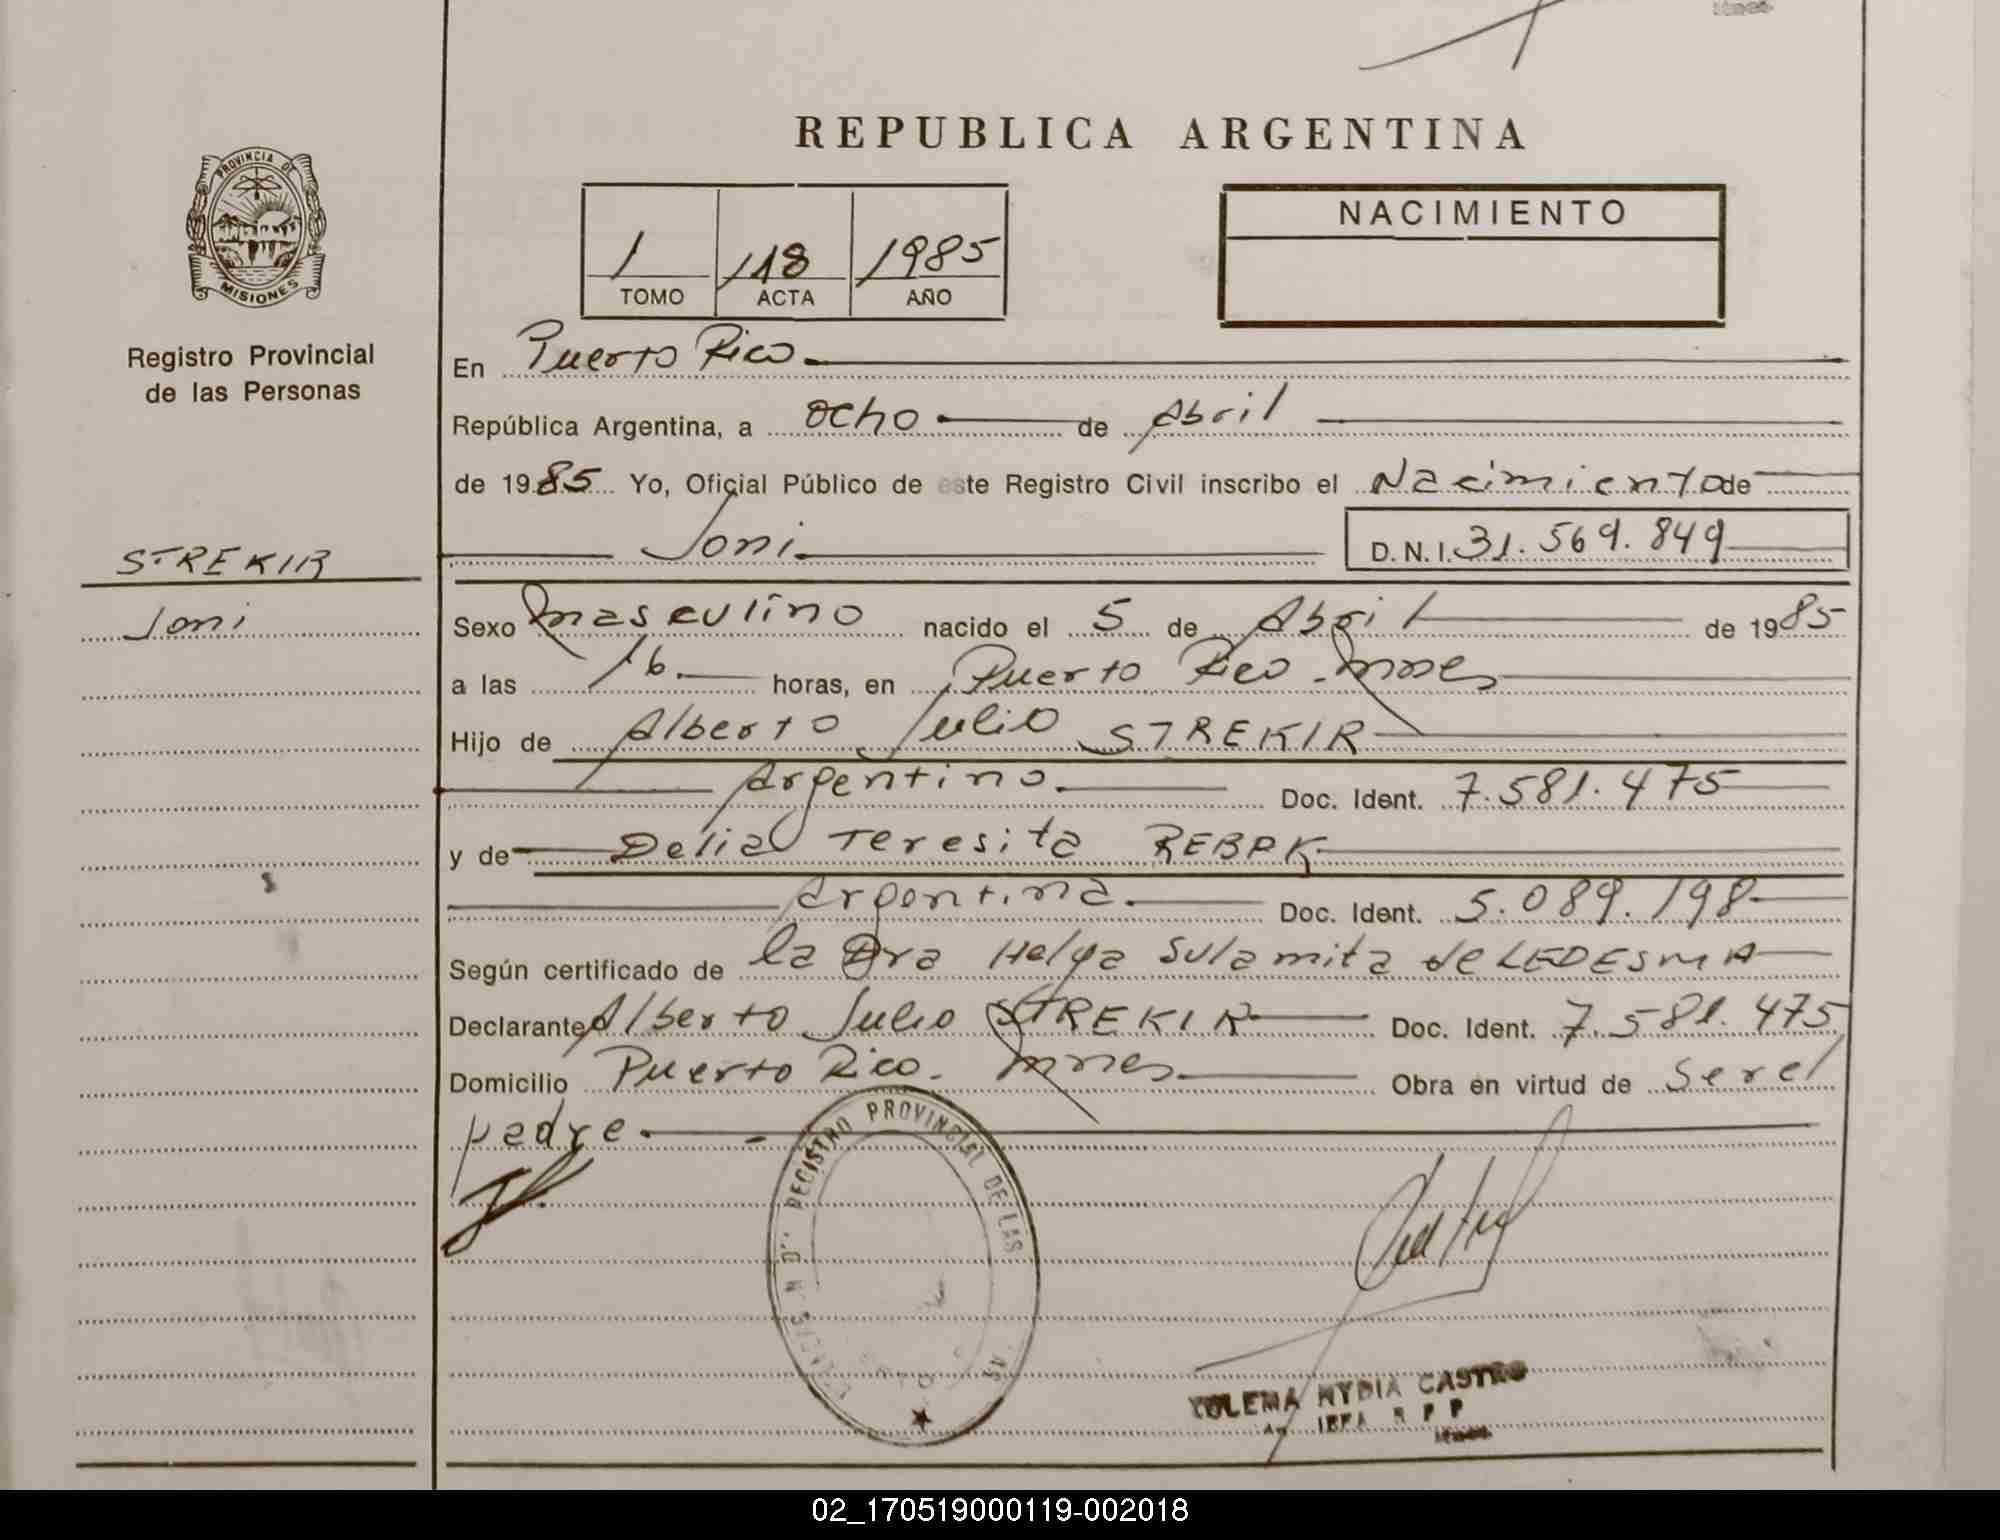 REPUBLICA ARGENTINA
PROVINCIA DE
MISIONES
Registro Provincial
de las Personas
1 118 1985
TOMO ACTA AÑO
NACIMIENTO
En Puerto Rico.
República Argentina, a ocho de Abril
de 1985 Yo, Oficial Público de este Registro Civil inscribo el Nacimiento de
Joni. D.N.I. 31.569.849
STREKIR
Joni
Sexo masculino nacido el 5 de Abril de 1985
a las 16. horas, en Puerto Rico. Mnes
Hijo de Alberto Julio STREKIR
Argentino. Doc. Ident. 7.581.475
y de Delia Teresita REBAK
Argentina. Doc. Ident. 5.089.198
Según certificado de la Dra Helga Sulamita de LEDESMA
Declarante Alberto Julio STREKIR Doc. Ident. 7.581.475
Domicilio Puerto Rico. Mnes Obra en virtud de Ser el
padre.
REGISTRO PROVINCIAL DE LAS
NYDIA CASTRO
02_170519000119-002018